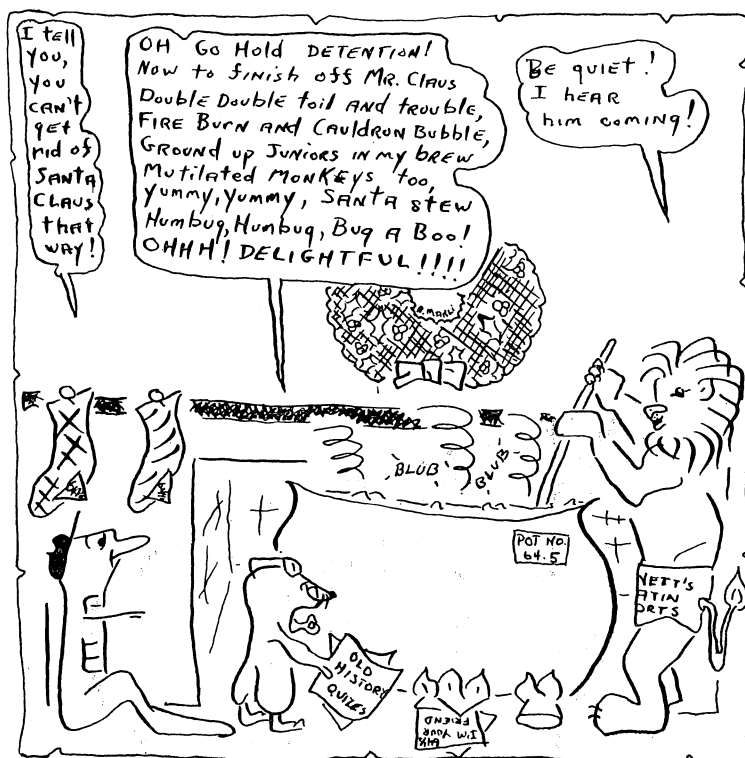 I tell
you,
you
can't
get
rid of
SANTA
CLAUS
that
way!
OH Go Hold DETENTION!
Now to finish off MR. Claus
Double Double toil and trouble,
FIRE BURN AND CAULDRON BUBBLE,
GROUND up JUNIORS IN my BREW
Mutilated MONKEYS too,
yummy, yummy, SANTA STEW
Humbug, Humbug, Bug A Boo!
OHHH! DELIGHTFUL!!!!
BE quiet!
I HEAR
him coming!
BLUB
BLUB
POT NO.
64.5
NETT'S
ATIN
ORTS
OLD
HISTORY
QUIZES
I'M YOUR
FRIEND